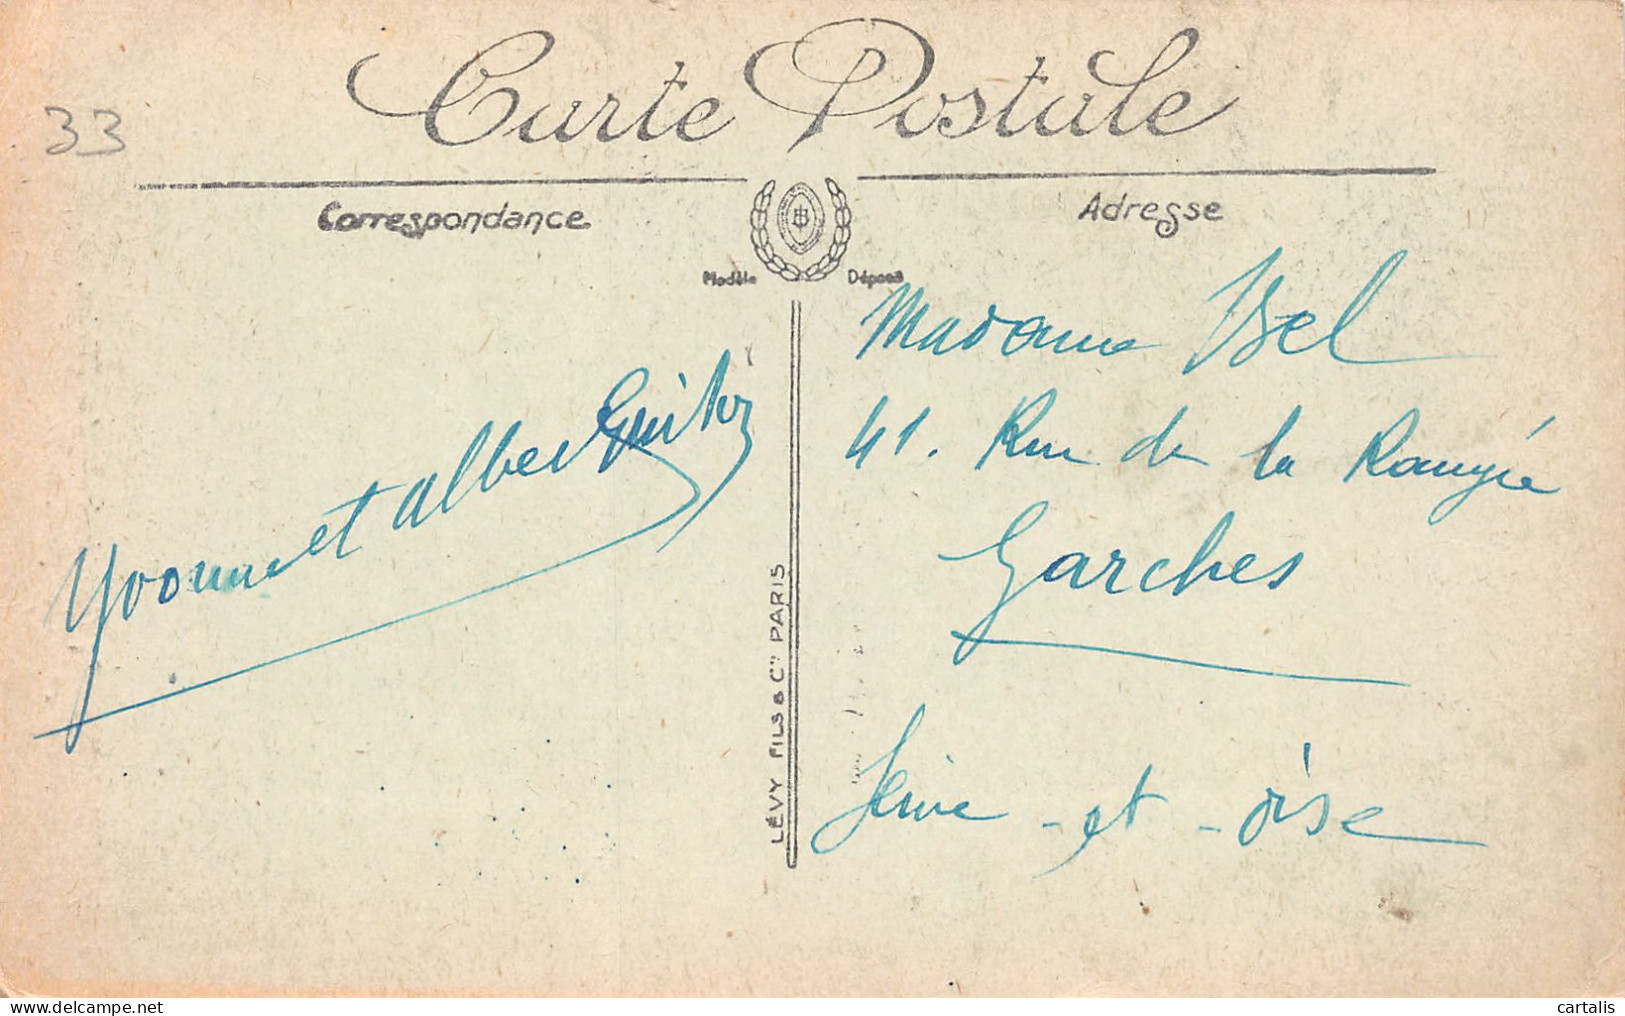 33
Carte Postale
Correspondance
Adresse
Modèle Déposé
Yvonne et Albert
Madame
41. Rue de la
Garches
Seine-et-Oise
LÉVY FILS & Cie PARIS
www.delcampe.net
cartalis